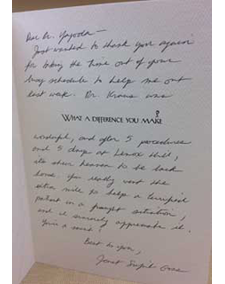 Dear Dr. Yagoda —
Just wanted to thank you again
for taking the time out of your
busy schedule to help me out
last week. Dr. Kraus was
WHAT A DIFFERENCE YOU MAKE!
wonderful, and after 5 procedures
and 5 days at Lenox Hill,
its sheer heaven to be back
home. You really went the
extra mile to help a terrified
patient in a fraught situation,
and I sincerely appreciate it.
You're a saint!
Best to you,
Janet